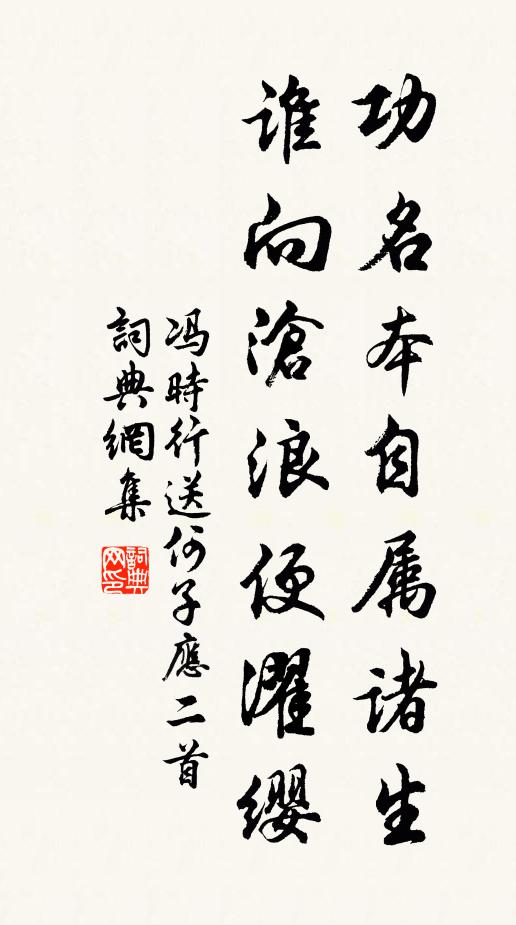 功名本自属诸生
谁向滄浪便濯缨
冯時行送何子應二首
詞典網集
詞典網印